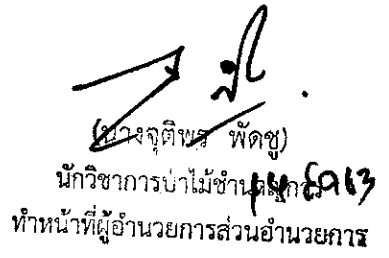 (นางจุติพร พัดชู)
นักวิชาการป่าไม้ชำนาญการ
ทำหน้าที่ผู้อำนวยการส่วนอำนวยการ